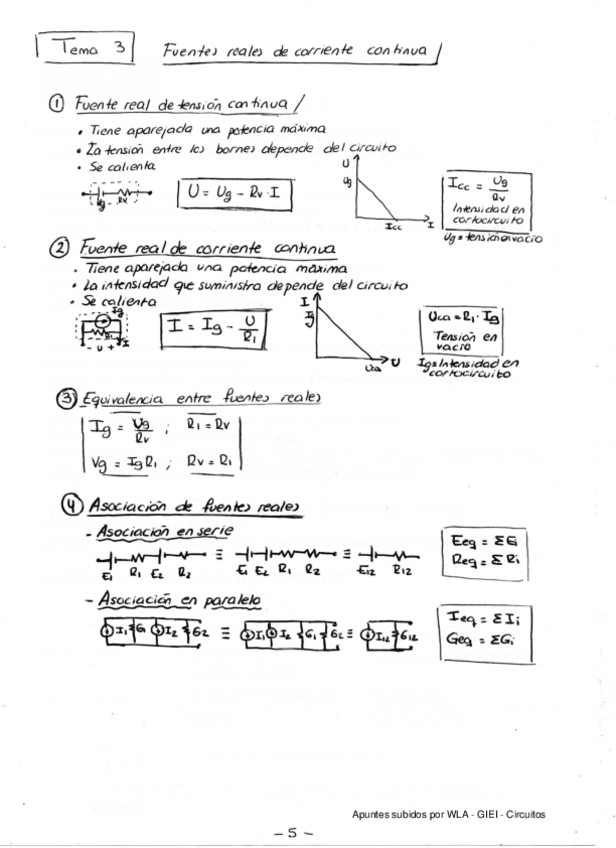 Tema 3 Fuentes reales de corriente continua
① Fuente real de tensión continua
• Tiene aparejada una potencia máxima
• La tensión entre los bornes depende del circuito
• Se calienta
Ug - Rv
U = Ug - Rv · I
U
Ug
Icc
I
Icc = Ug / Rv
Intensidad en
cortocircuito
Ug = tensión en vacío
② Fuente real de corriente continua
• Tiene aparejada una potencia máxima
• La intensidad que suministra depende del circuito
• Se calienta
Ig
- U + I
I = Ig - U / R1
I
Ig
Uca
U
Uca = R1 · Ig
Tensión en
vacío
Ig = Intensidad en
cortocircuito
③ Equivalencia entre fuentes reales
Ig = Ug / Rv ; R1 = Rv
Vg = Ig R1 ; Rv = R1
④ Asociación de fuentes reales
- Asociación en serie
≡ ≡
E1 R1 E2 R2 E1 E2 R1 R2 E12 R12
Eeq = ΣEi
Req = ΣRi
- Asociación en paralelo
I1 G1 I2 G2 ≡ I1 I2 G1 G2 ≡ I12 G12
Ieq = ΣIi
Geq = ΣGi
Apuntes subidos por WLA - GIEI - Circuitos
- 5 -